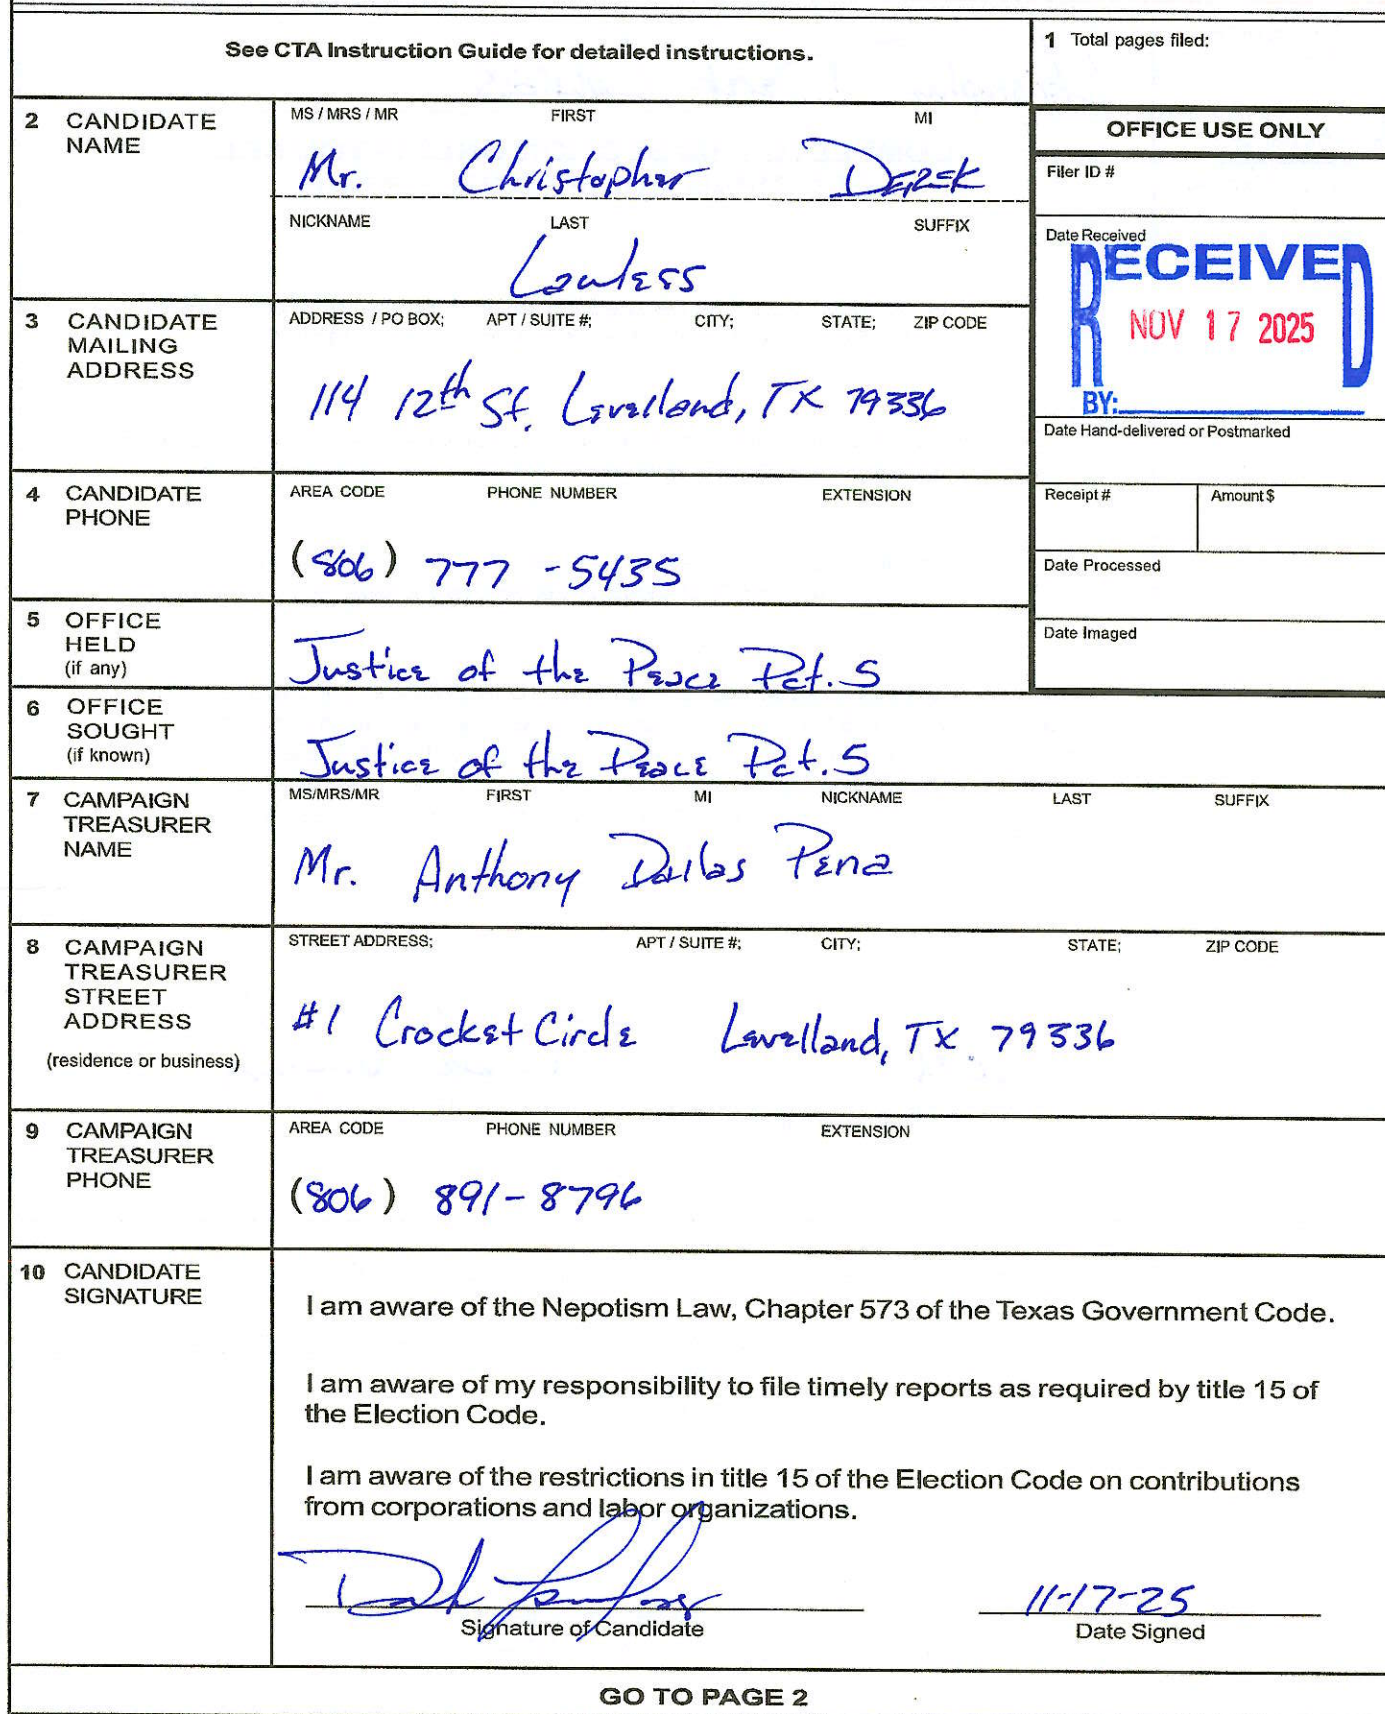 See CTA Instruction Guide for detailed instructions.
1 Total pages filed:
2 CANDIDATE NAME
MS / MRS / MR FIRST MI
Mr. Christopher Derek
NICKNAME LAST SUFFIX
Lawless
OFFICE USE ONLY
Filer ID #
Date Received
RECEIVED
NOV 17 2025
BY:
Date Hand-delivered or Postmarked
Receipt # Amount $
Date Processed
Date Imaged
3 CANDIDATE MAILING ADDRESS
ADDRESS / PO BOX; APT / SUITE #; CITY; STATE; ZIP CODE
114 12th St. Levelland, TX 79336
4 CANDIDATE PHONE
AREA CODE PHONE NUMBER EXTENSION
(806) 777-5435
5 OFFICE HELD (if any)
Justice of the Peace Pct. 5
6 OFFICE SOUGHT (if known)
Justice of the Peace Pct. 5
7 CAMPAIGN TREASURER NAME
MS/MRS/MR FIRST MI NICKNAME LAST SUFFIX
Mr. Anthony Dallas Pena
8 CAMPAIGN TREASURER STREET ADDRESS (residence or business)
STREET ADDRESS; APT / SUITE #; CITY; STATE; ZIP CODE
#1 Crocket Circle Levelland, TX 79336
9 CAMPAIGN TREASURER PHONE
AREA CODE PHONE NUMBER EXTENSION
(806) 891-8796
10 CANDIDATE SIGNATURE
I am aware of the Nepotism Law, Chapter 573 of the Texas Government Code.
I am aware of my responsibility to file timely reports as required by title 15 of
the Election Code.
I am aware of the restrictions in title 15 of the Election Code on contributions
from corporations and labor organizations.
11-17-25
Signature of Candidate Date Signed
GO TO PAGE 2